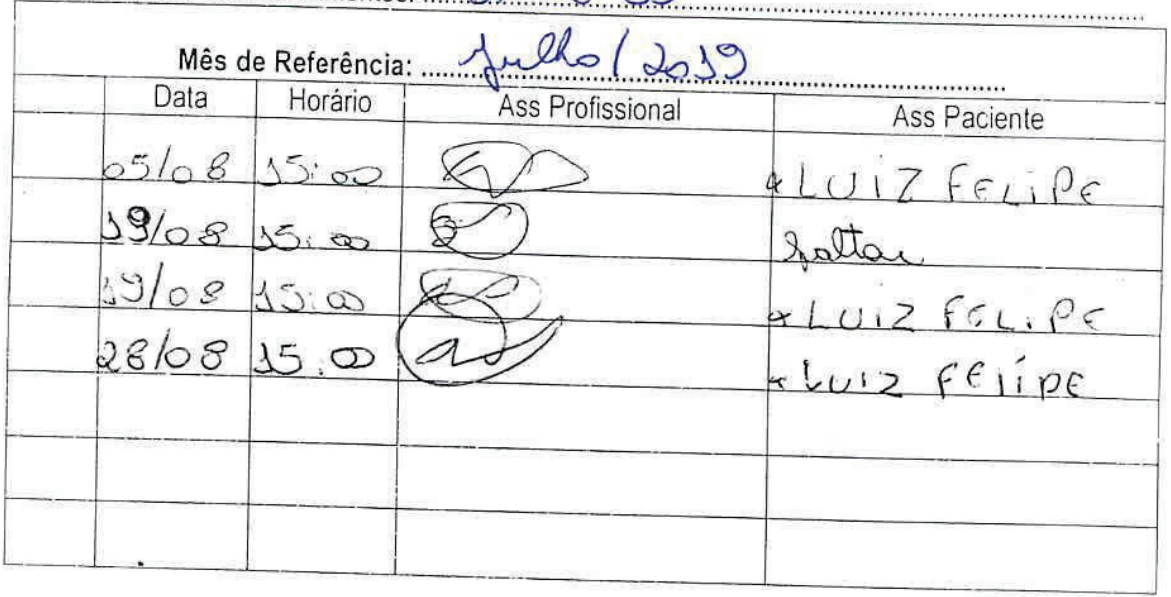 Mês de Referência: Julho/2019
Data Horário Ass Profissional Ass Paciente
05/08 15:00 LUIZ FELIPE
19/08 15:00 Faltou
19/08 15:00 LUIZ FELIPE
28/08 15:00 LUIZ FELIPE